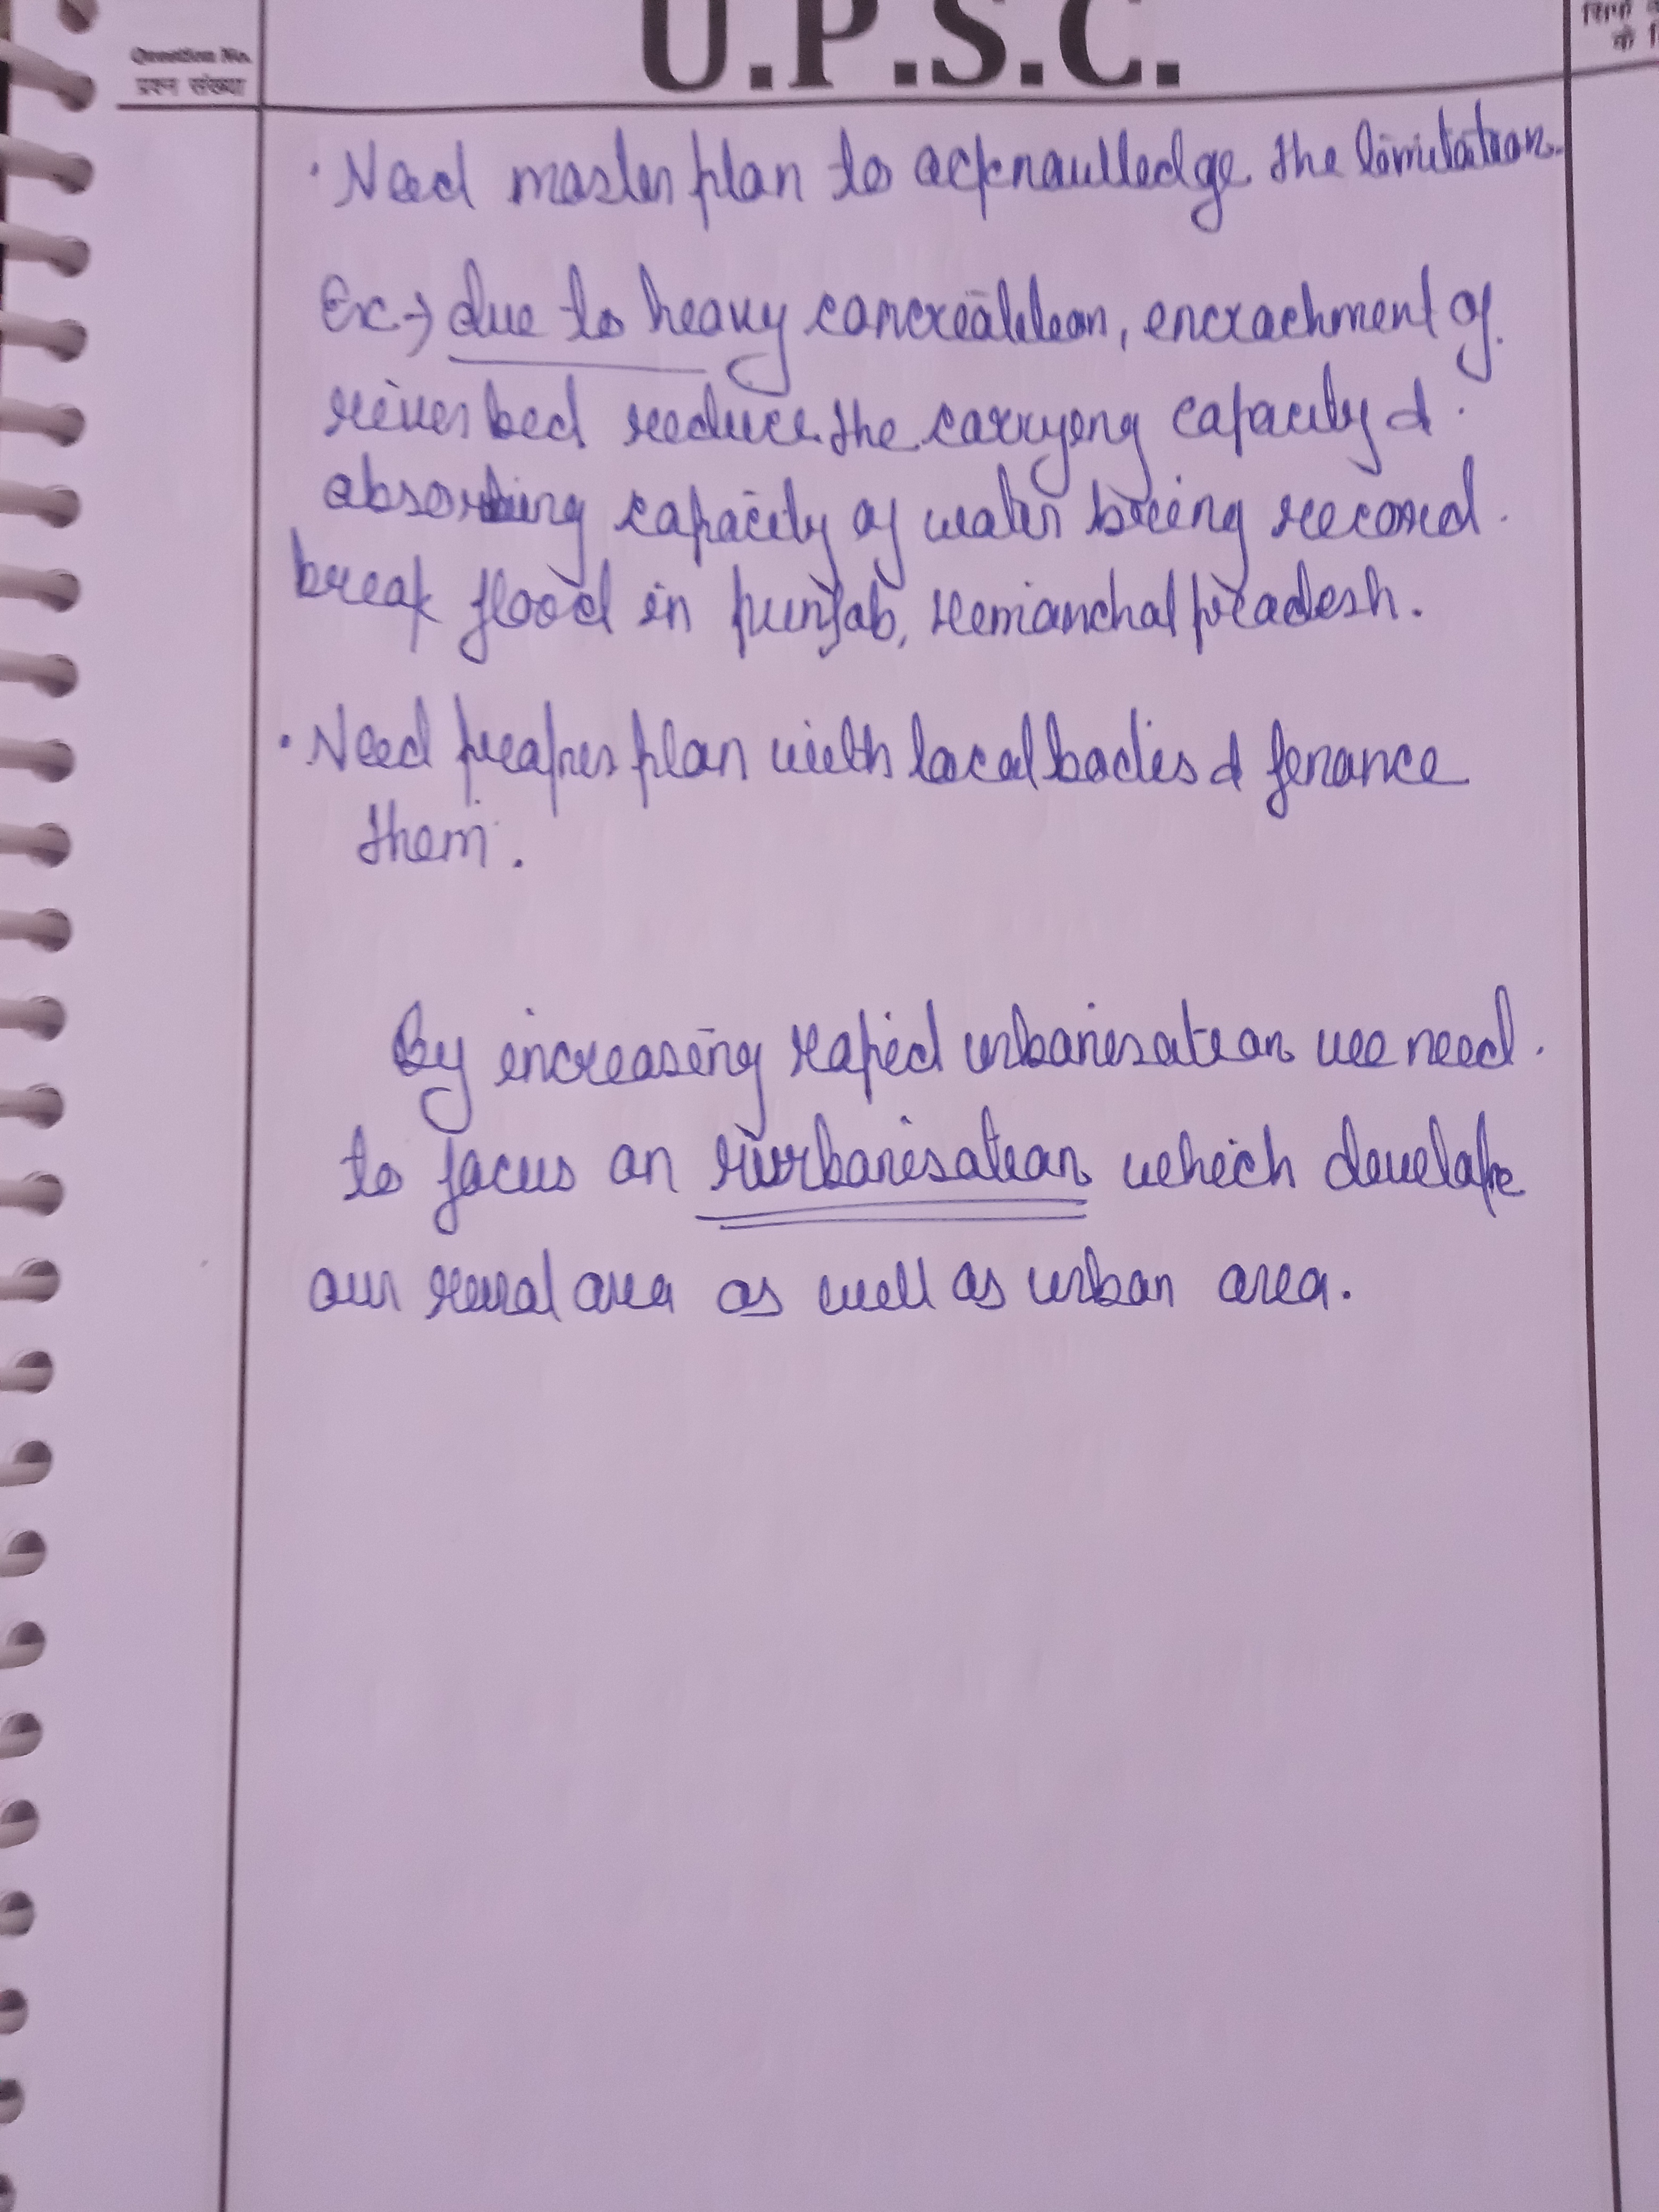 Question No.
प्रश्न संख्या
U.P.S.C.
· Need master plan to acknaulledge the limitation.
Ex→ due to heavy concreatition, encrachment of
river bed reduce the carrying capacity &
absorbing capacity of water bring record
break flood in punjab, Hemanchal pradesh.
· Need proper plan with local bodies & finance
them.
By increasing rapid urbanisation we need
to focus on rurbanisation which develope
our rural area as well as urban area.